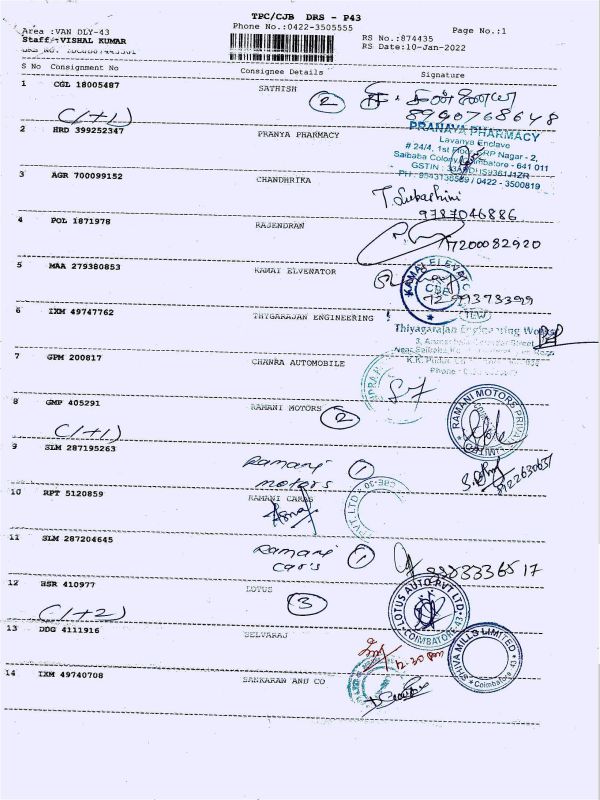 TPC/CJB DRS - P43
Phone No.:0422-3505555
Page No.:1
Area :VAN DLY-43
Staff :VISHAL KUMAR
RS No.:874435
RS Date:10-Jan-2022
S No Consignment No Consignee Details Signature
1 CGL 18005487 SATHISH 2
8940768648
(1+1)
2 HRD 399252347 PRANYA PHARMACY
PRANAVA PHARMACY
Lavanya Enclave
# 24/4, 1st Floor, RP Nagar - 2,
Saibaba Colony, Coimbatore - 641 011
PH : / 0422 - 3500819
3 AGR 700099152 CHANDHRIKA
T. Subashini
9787046886
4 POL 1871978 RAJENDRAN
7200082920
5 MAA 279380853 KAMAI ELVENATOR
KAMAI ELEVAT
CBE
7299373399
6 IXM 49747762 THYGARAJAN ENGINEERING
Thiyagarajan Engineering Works
7 GPM 200817 CHANRA AUTOMOBILE
8 GMP 405291 RAMANI MOTORS 2
RAMANI MOTORS PRIVATE LIMITED
(1+1)
9 SLM 287195263 Ramani motors 1
8122630651
10 RPT 5120859 RAMANI CARAS
PVT LTD CBE-30
11 SLM 287204645 Ramani car's 1
9883336517
12 HSR 410977 LOTUS 3
LOTUS AUTO PVT LTD
COIMBATORE-43
(1+2)
13 DDG 4111916 SELVARAJ
SHIVA MILLS LIMITED
Coimbatore
14 IXM 49740708 SANKARAN AND CO